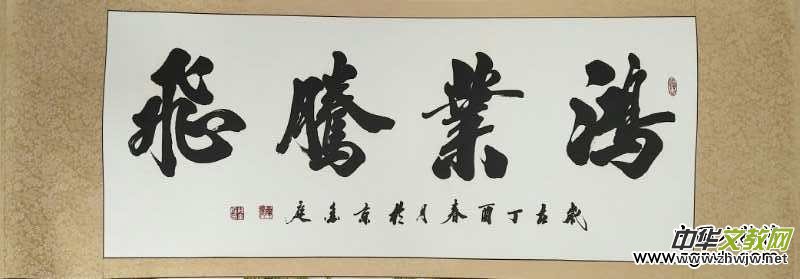 鴻業騰飛
歲在丁酉春月於京庭
中华文教网
www.wgw.zhwjw.net